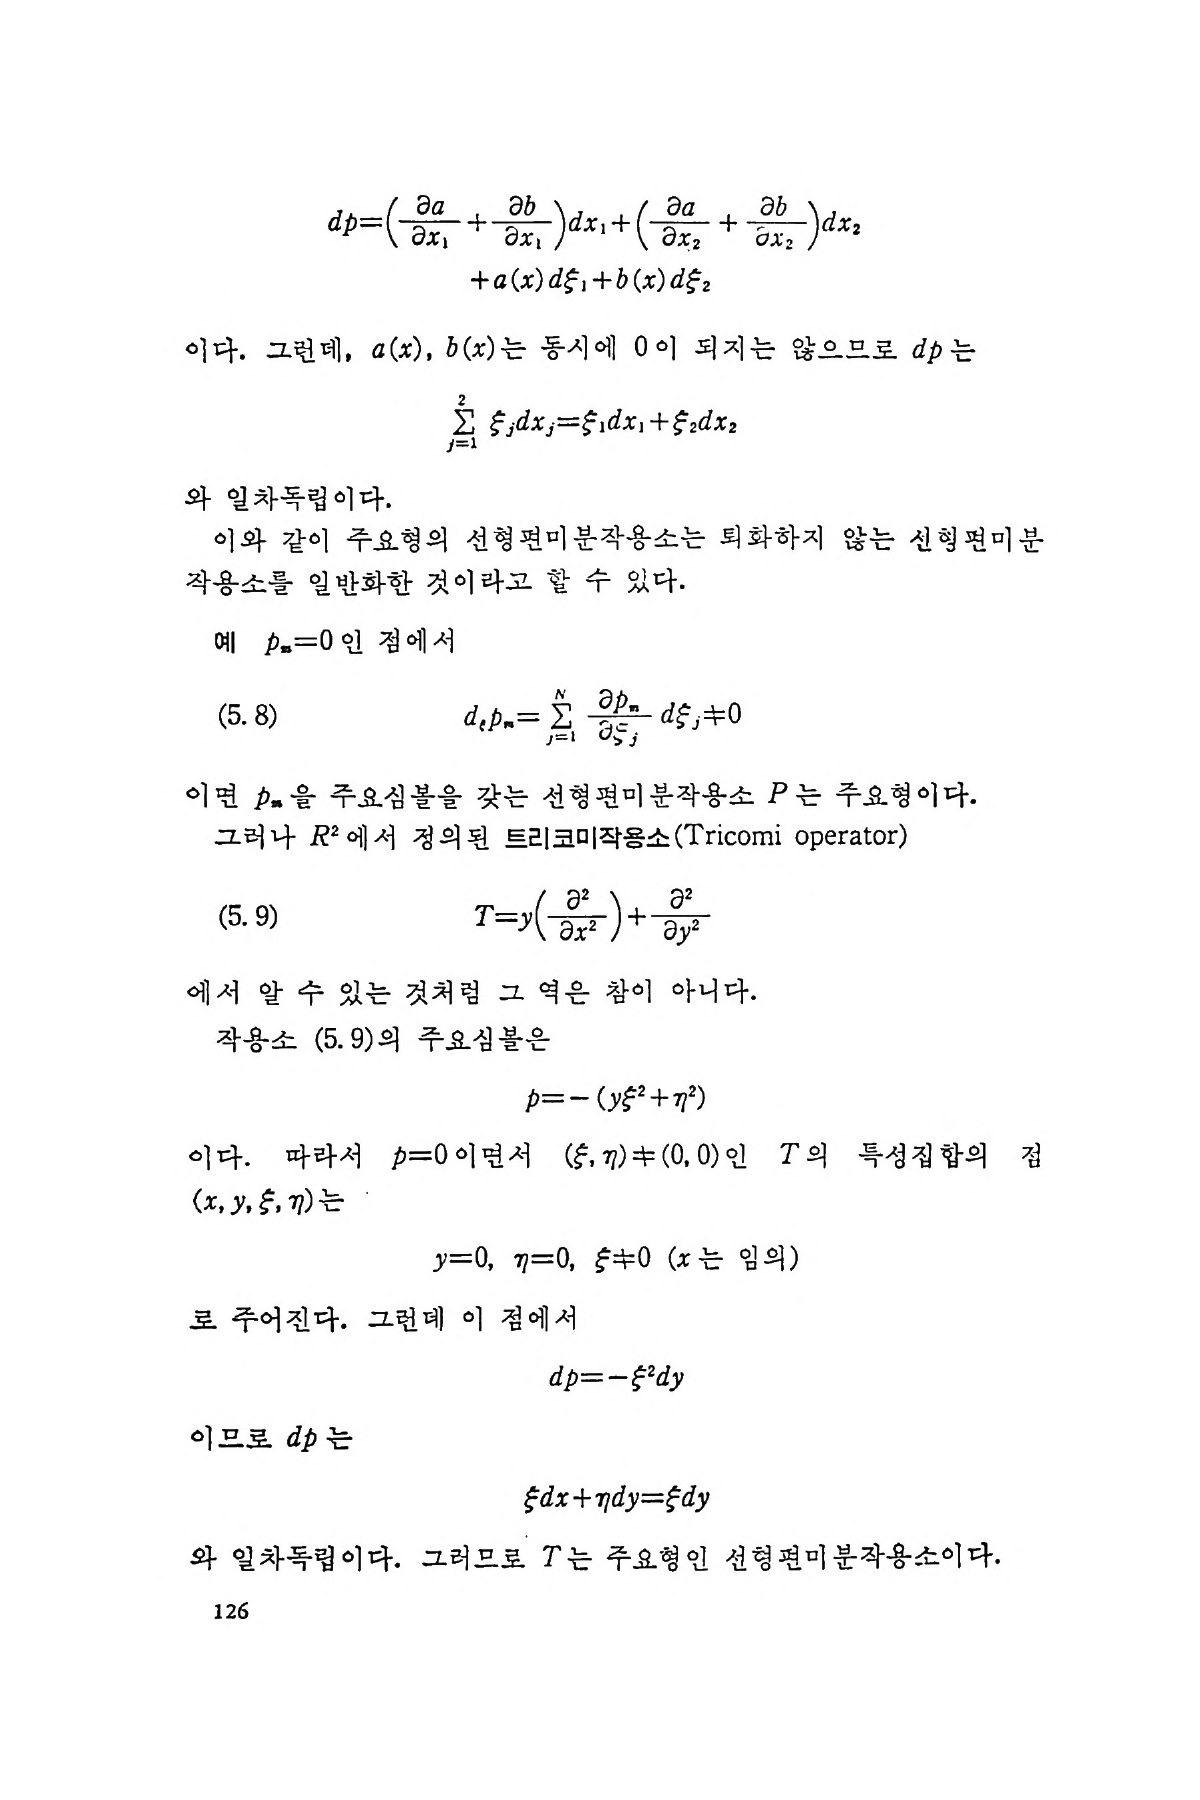 dp=(∂a/∂x₁ + ∂b/∂x₁)dx₁+(∂a/∂x₂ + ∂b/∂x₂)dx₂
+a(x)dξ₁+b(x)dξ₂
이다. 그런데, a(x), b(x)는 동시에 0이 되지는 않으므로 dp는
∑_{j=1}^{2} ξⱼdxⱼ=ξ₁dx₁+ξ₂dx₂
와 일차독립이다.
이와 같이 주요형의 선형편미분작용소는 퇴화하지 않는 선형편미분
작용소를 일반화한 것이라고 할 수 있다.
예 pₘ=0인 점에서
(5. 8) d_ξpₘ= ∑_{j=1}^{N} ∂pₘ/∂ξⱼ dξⱼ≠0
이면 pₘ을 주요심볼을 갖는 선형편미분작용소 P는 주요형이다.
그러나 R²에서 정의된 트리코미작용소(Tricomi operator)
(5. 9) T=y(∂²/∂x²)+∂²/∂y²
에서 알 수 있는 것처럼 그 역은 참이 아니다.
작용소 (5. 9)의 주요심볼은
p=−(yξ²+η²)
이다. 따라서 p=0이면서 (ξ, η)≠(0, 0)인 T의 특성집합의 점
(x, y, ξ, η)는
y=0, η=0, ξ≠0 (x는 임의)
로 주어진다. 그런데 이 점에서
dp=−ξ²dy
이므로 dp는
ξdx+ηdy=ξdy
와 일차독립이다. 그러므로 T는 주요형인 선형편미분작용소이다.
126